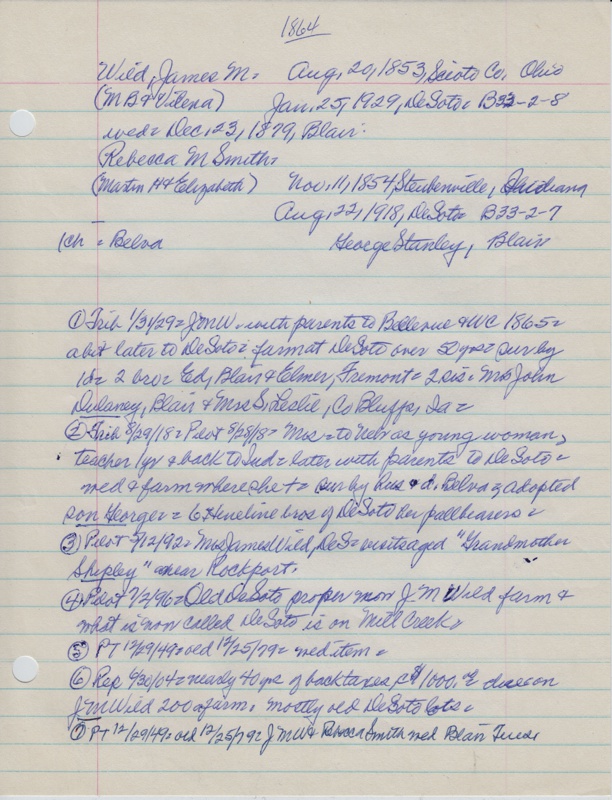 1864
Wild, James M. = Aug. 20, 1853, Scioto Co. Ohio
(M B & Villena) Jan. 25, 1929, DeSoto = B33-2-8
wed = Dec. 23, 1879, Blair.
Rebecca M Smith =
(Martin H & Elizabeth) Nov. 11, 1854 Steubenville, Indiana
Aug. 22, 1918, DeSoto = B33-2-7
1ch = Belva George Stanley, Blair
① Trib 1/31/29 = JMW. with parents to Bellevue & WC 1865 =
a bit later to DeSoto = farm at DeSoto over 50 yrs = sur by
1d = 2 bro = Ed, Blair & Elmer, Fremont = 2 sis = Mrs John
Dulaney, Blair & Mrs S. Leslie, Co Bluffs, Ia =
② Trib 8/29/18 = Pilot 8/28/18 = Mrs = to Neb as young woman,
teacher 1 yr & back to Ind = later with parents to DeSoto =
wed & farm where she + = sur by hus & d. Belva & adopted
son George = 6 Hineline bros of DeSoto her pallbearers =
③ Pilot 5/12/92 = Mrs James Wild, DeS = visits aged "Grandmother
Shipley" near Rockport.
④ Pilot 1/2/96 = Old DeSoto proper now J. M Wild farm &
what is now called DeSoto is on Mill Creek =
⑤ PT 12/29/49 = od 12/25/79 = wed item =
⑥ Rep 6/30/04 = nearly 40 yrs of back taxes, $1000. due on
J M Wild 200 a farm. mostly old DeSoto lots =
⑦ PT 12/29/49 = od 12/25/79 = J M W & Smith wed Blair Tues.